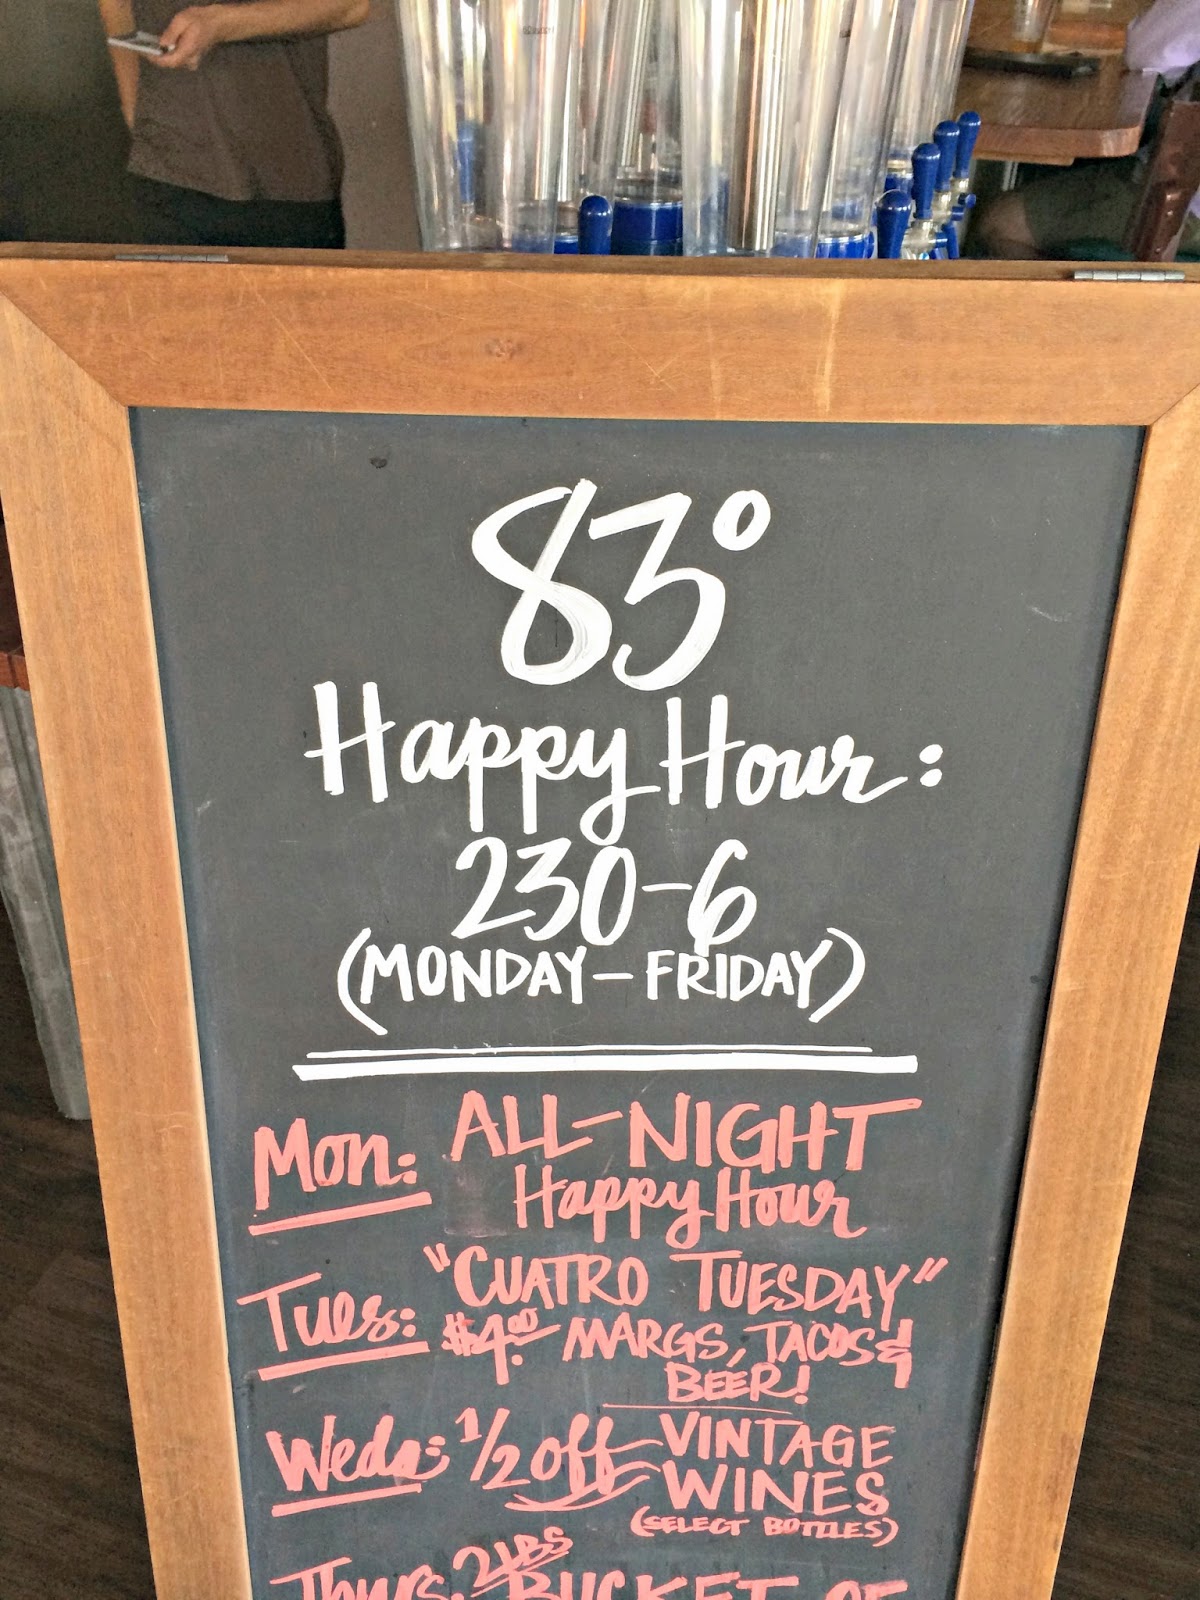 83°
Happy Hour:
230-6
(MONDAY-FRIDAY)
Mon: ALL-NIGHT
Happy Hour
Tues: "CUATRO TUESDAY"
$4.00 MARGS, TACOS &
BEER!
Weds: 1/2 off VINTAGE
WINES
(SELECT BOTTLES)
Thurs: 2LBS BUCKET OF